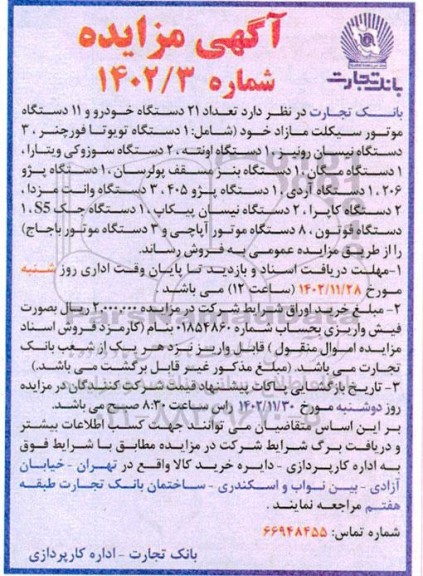 آگهی مزایده
شماره ۱۴۰۲/۳
بانک تجارت
بانک تجارت در نظر دارد تعداد ۲۱ دستگاه خودرو و ۱۱ دستگاه
موتور سیکلت مازاد خود (شامل: ۱ دستگاه تویوتا فورچنر ، ۳
دستگاه نیسان رونیز ، ۱ دستگاه اونته ، ۲ دستگاه سوزوکی ویتارا ،
۱ دستگاه مگان ، ۱ دستگاه بنز مسقف پولرسان ، ۱ دستگاه پژو
۲۰۶ ، ۱ دستگاه آردی ، ۱ دستگاه پژو ۴۰۵ ، ۳ دستگاه وانت مزدا ،
۲ دستگاه کاپرا ، ۲ دستگاه نیسان پیکاپ ، ۱ دستگاه جک S5 ، ۱
دستگاه فوتون ، ۸ دستگاه موتور آپاچی و ۳ دستگاه موتور باجاج)
را از طریق مزایده عمومی به فروش رساند.
۱-مهلت دریافت اسناد و بازدید تا پایان وقت اداری روز شنبه
مورخ ۱۴۰۲/۱۱/۲۸ (ساعت ۱۲) می باشد .
۲- مبلغ خرید اوراق شرایط شرکت در مزایده ۲.۰۰۰.۰۰۰ ریال بصورت
فیش واریزی بحساب شماره ۰۱۸۵۴۸۶۰ بنام (کارمزد فروش اسناد
مزایده اموال منقول ) قابل واریز نزد هر یک از شعب بانک
تجارت می باشد. (مبلغ مذکور غیر قابل برگشت می باشد.)
۳- تاریخ بازگشایی پاکات پیشنهاد قیمت شرکت کنندگان در مزایده
روز دوشنبه مورخ ۱۴۰۲/۱۱/۳۰ راس ساعت ۸:۳۰ صبح می باشد.
بر این اساس متقاضیان می توانند جهت کسب اطلاعات بیشتر
و دریافت برگ شرایط شرکت در مزایده مطابق با شرایط فوق
به اداره کارپردازی - دایره خرید کالا واقع در تهران - خیابان
آزادی - بین نواب و اسکندری - ساختمان بانک تجارت طبقه
هفتم مراجعه نمایند .
شماره تماس: ۶۶۹۴۸۴۵۵
بانک تجارت - اداره کارپردازی